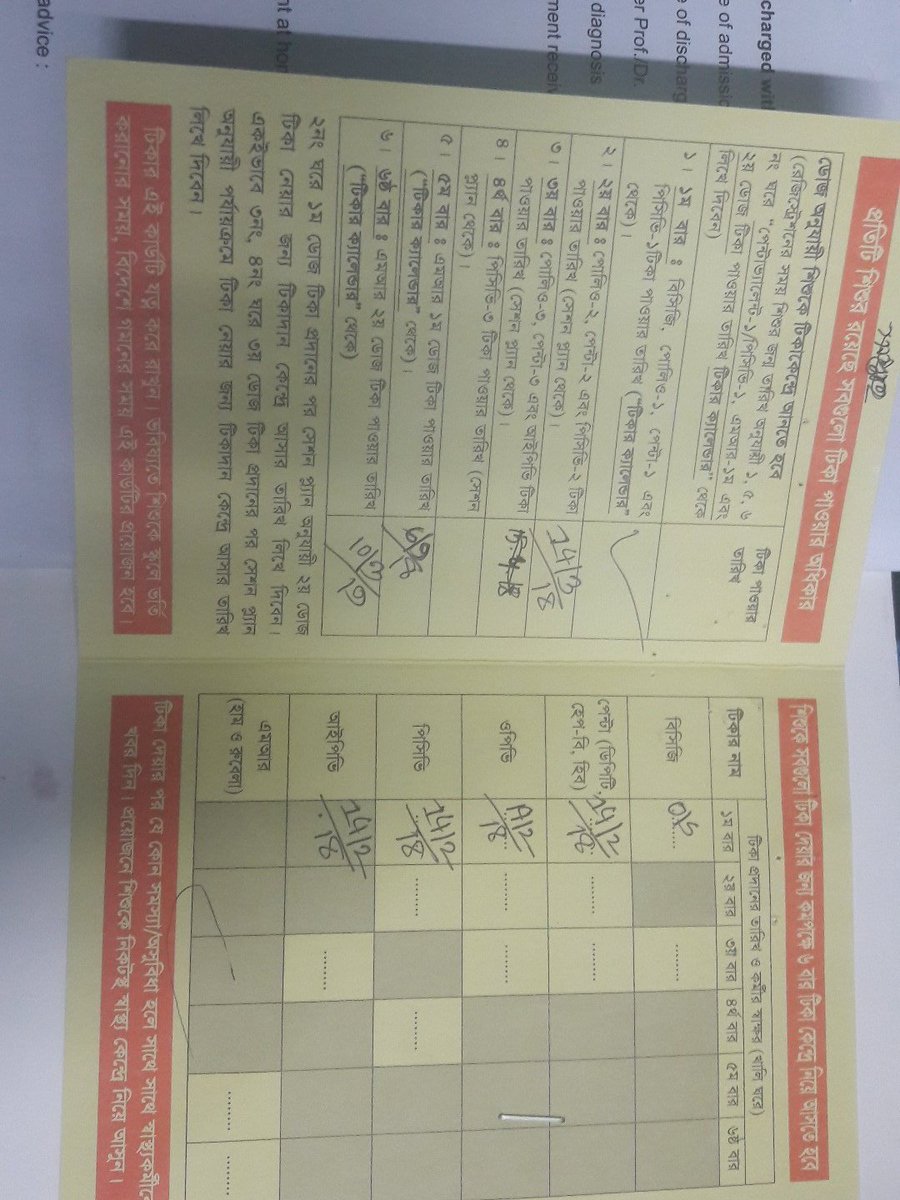 charged with
e of admissio
e of discharg
er Prof./Dr.
diagnosis
ment receiv
nt at hom
advice :
প্রতিটি শিশুর রয়েছে সবগুলো টিকা পাওয়ার অধিকার
ডোজ অনুযায়ী শিশুকে টিকাকেন্দ্রে আনতে হবে
(রেজিস্ট্রেশনের সময় শিশুর জন্ম তারিখ অনুযায়ী ১, ৫, ৬
নং ঘরে “পেন্টাভ্যালেন্ট-১/পিসিভি-১, এমআর-১ম এবং
২য় ডোজ টিকা পাওয়ার তারিখ টিকার ক্যালেন্ডার” থেকে
লিখে দিবেন)
টিকা পাওয়ার
তারিখ
১। ১ম বার : বিসিজি, পোলিও-১, পেন্টা-১ এবং
পিসিভি-১টিকা পাওয়ার তারিখ (“টিকার ক্যালেন্ডার”
থেকে)।
২। ২য় বার : পোলিও-২, পেন্টা-২ এবং পিসিভি-২ টিকা
পাওয়ার তারিখ (সেশন প্ল্যান থেকে)।
৩। ৩য় বার : পোলিও-৩, পেন্টা-৩ এবং আইপিভি টিকা
পাওয়ার তারিখ (সেশন প্ল্যান থেকে)।
৪। ৪র্থ বার : পিসিভি-৩ টিকা পাওয়ার তারিখ (সেশন
প্ল্যান থেকে)।
৫। ৫ম বার : এমআর ১ম ডোজ টিকা পাওয়ার তারিখ
(“টিকার ক্যালেন্ডার” থেকে)।
৬। ৬ষ্ঠ বার : এমআর ২য় ডোজ টিকা পাওয়ার তারিখ
(“টিকার ক্যালেন্ডার” থেকে)
২নং ঘরে ১ম ডোজ টিকা প্রদানের পর সেশন প্ল্যান অনুযায়ী ২য় ডোজ
টিকা নেয়ার জন্য টিকাদান কেন্দ্রে আসার তারিখ লিখে দিবেন।
একইভাবে ৩নং, ৪নং ঘরে ৩য় ডোজ টিকা প্রদানের পর সেশন প্ল্যান
অনুযায়ী পর্যায়ক্রমে টিকা নেয়ার জন্য টিকাদান কেন্দ্রে আসার তারিখ
লিখে দিবেন।
টিকার এই কার্ডটি যত্ন করে রাখুন। ভবিষ্যতে শিশুকে স্কুলে ভর্তি
করানোর সময়, বিদেশে গমনের সময় এই কার্ডটির প্রয়োজন হবে।
শিশুকে সবগুলো টিকা দেয়ার জন্য কমপক্ষে ৬ বার টিকা কেন্দ্রে নিয়ে আসতে হবে
টিকার নাম
টিকা প্রদানের তারিখ ও কর্মীর স্বাক্ষর (খালি ঘরে)
১ম বার ২য় বার ৩য় বার ৪র্থ বার ৫ম বার ৬ষ্ঠ বার
বিসিজি
পেন্টা (ডিপিটি,
হেপ-বি, হিব)
ওপিভি
পিসিভি
আইপিভি
এমআর
(হাম ও রুবেলা)
টিকা দেয়ার পর যে কোন সমস্যা/অসুবিধা হলে সাথে সাথে স্বাস্থ্যকর্মীকে
খবর দিন। প্রয়োজনে শিশুকে নিকটস্থ স্বাস্থ্য কেন্দ্রে নিয়ে আসুন।